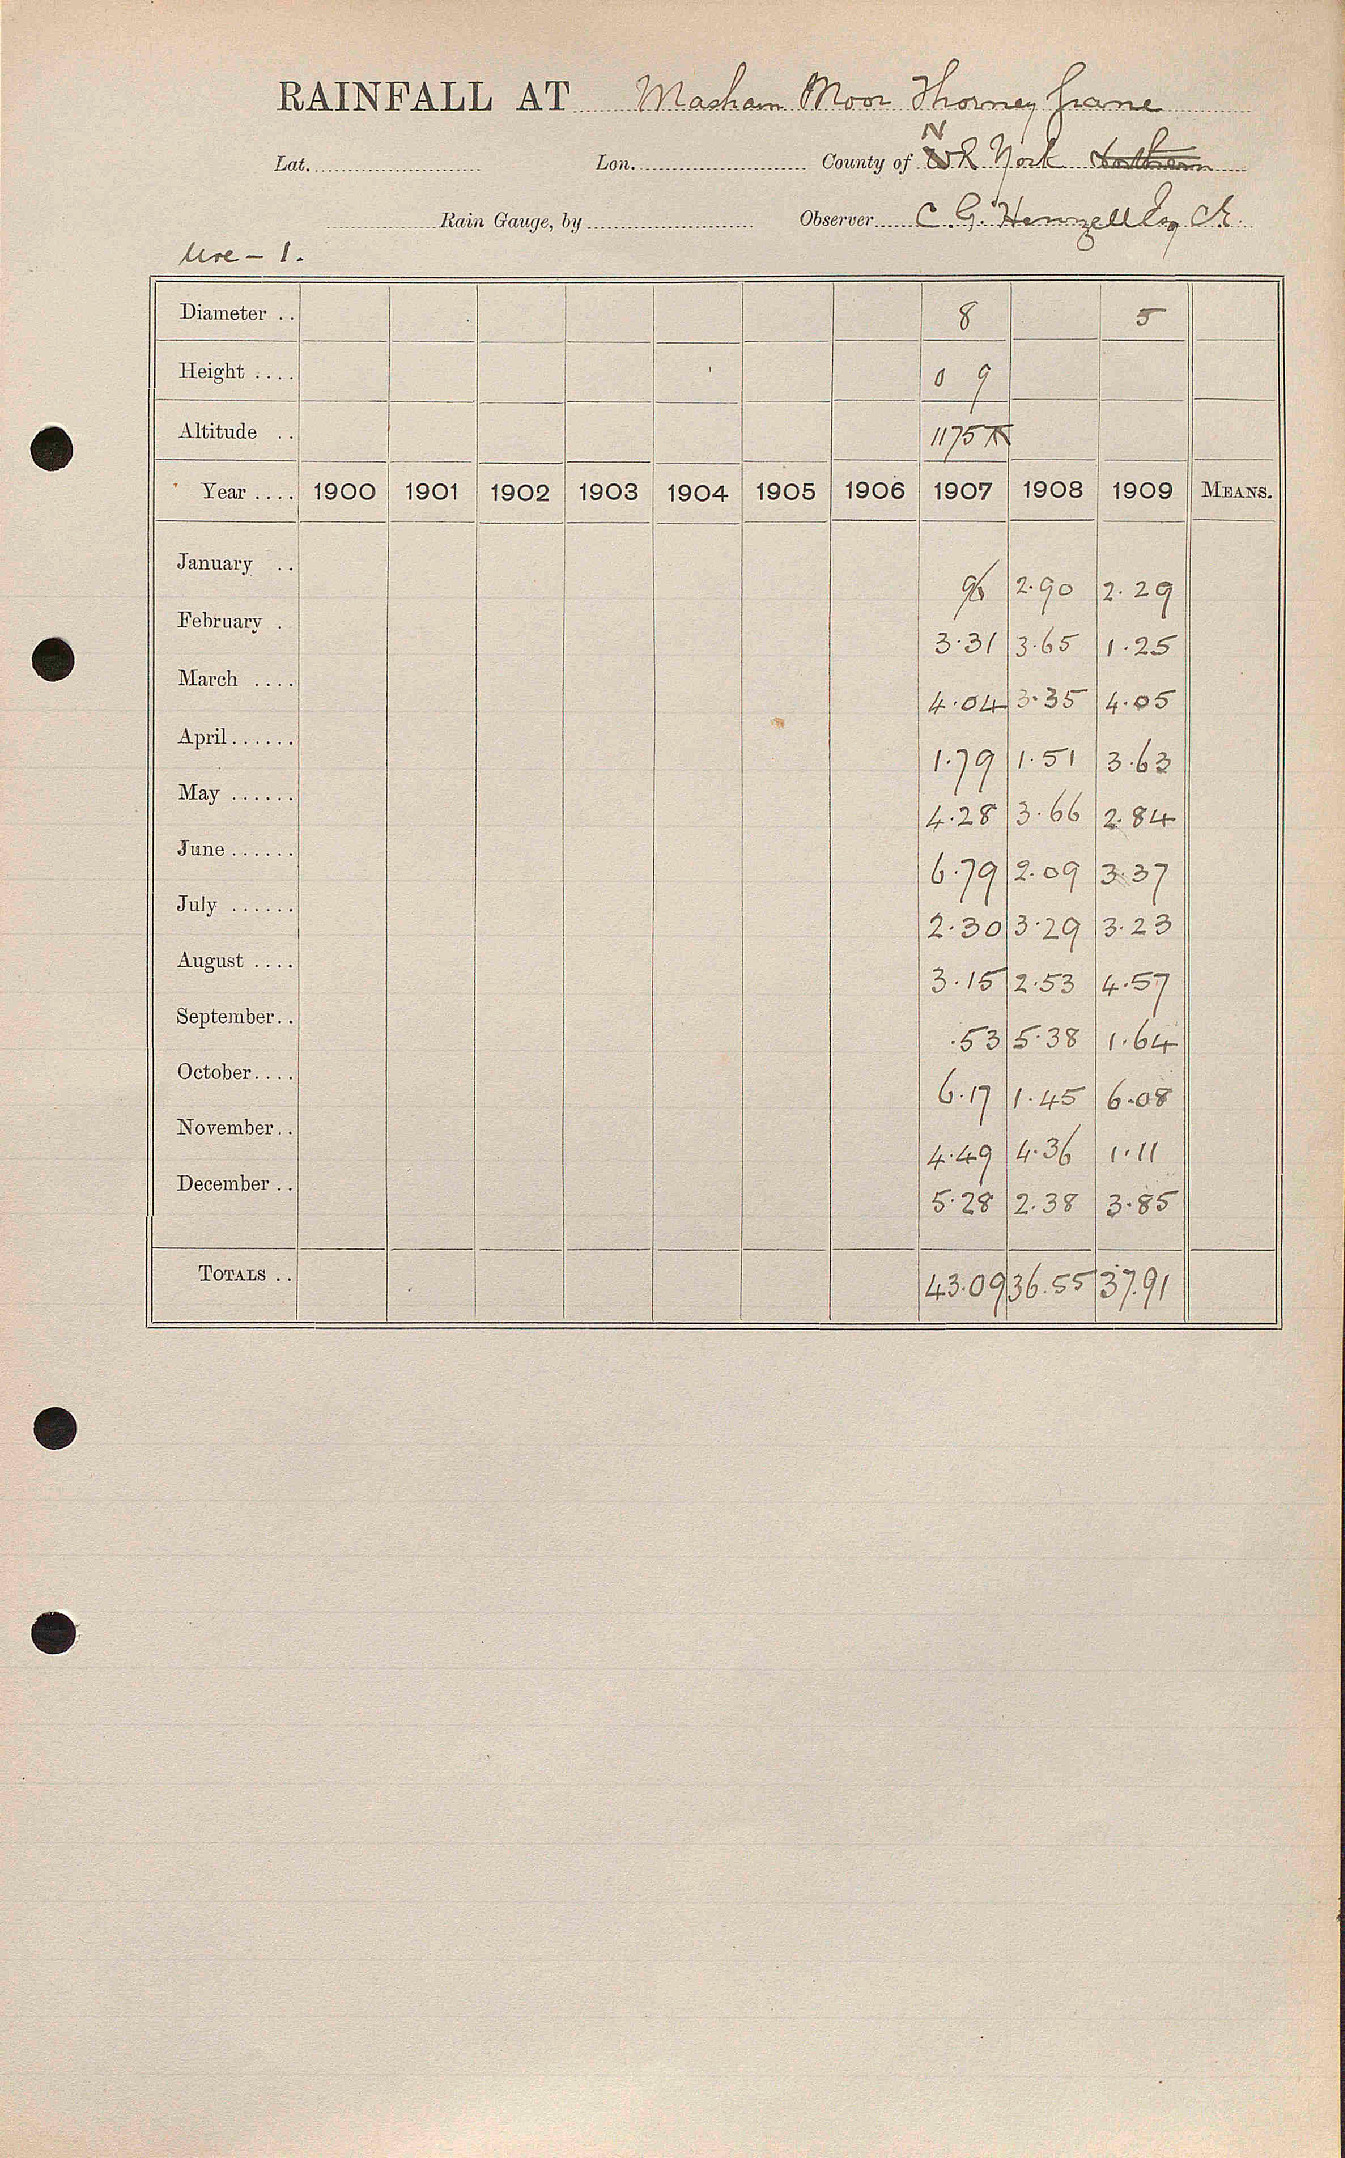 RAINFALL AT Masham Moor Thorney Grane
N
Lat. Lon. County of W R York Northern
Rain Gauge, by Observer C. G. Henzell Esq CE.
Ure - 1.
Diameter .. 8 5
Height .... 0 9
Altitude .. 1175 T
Year .... 1900 1901 1902 1903 1904 1905 1906 1907 1908 1909 MEANS.
January .. 96 2.90 2.29
February . 3.31 3.65 1.25
March .... 4.04 3.35 4.05
April...... 1.79 1.51 3.63
May ...... 4.28 3.66 2.84
June...... 6.79 2.09 3.37
July ...... 2.30 3.29 3.23
August .... 3.15 2.53 4.57
September.. .53 5.38 1.64
October.... 6.17 1.45 6.08
November.. 4.49 4.36 1.11
December .. 5.28 2.38 3.85
TOTALS .. 43.09 36.55 37.91